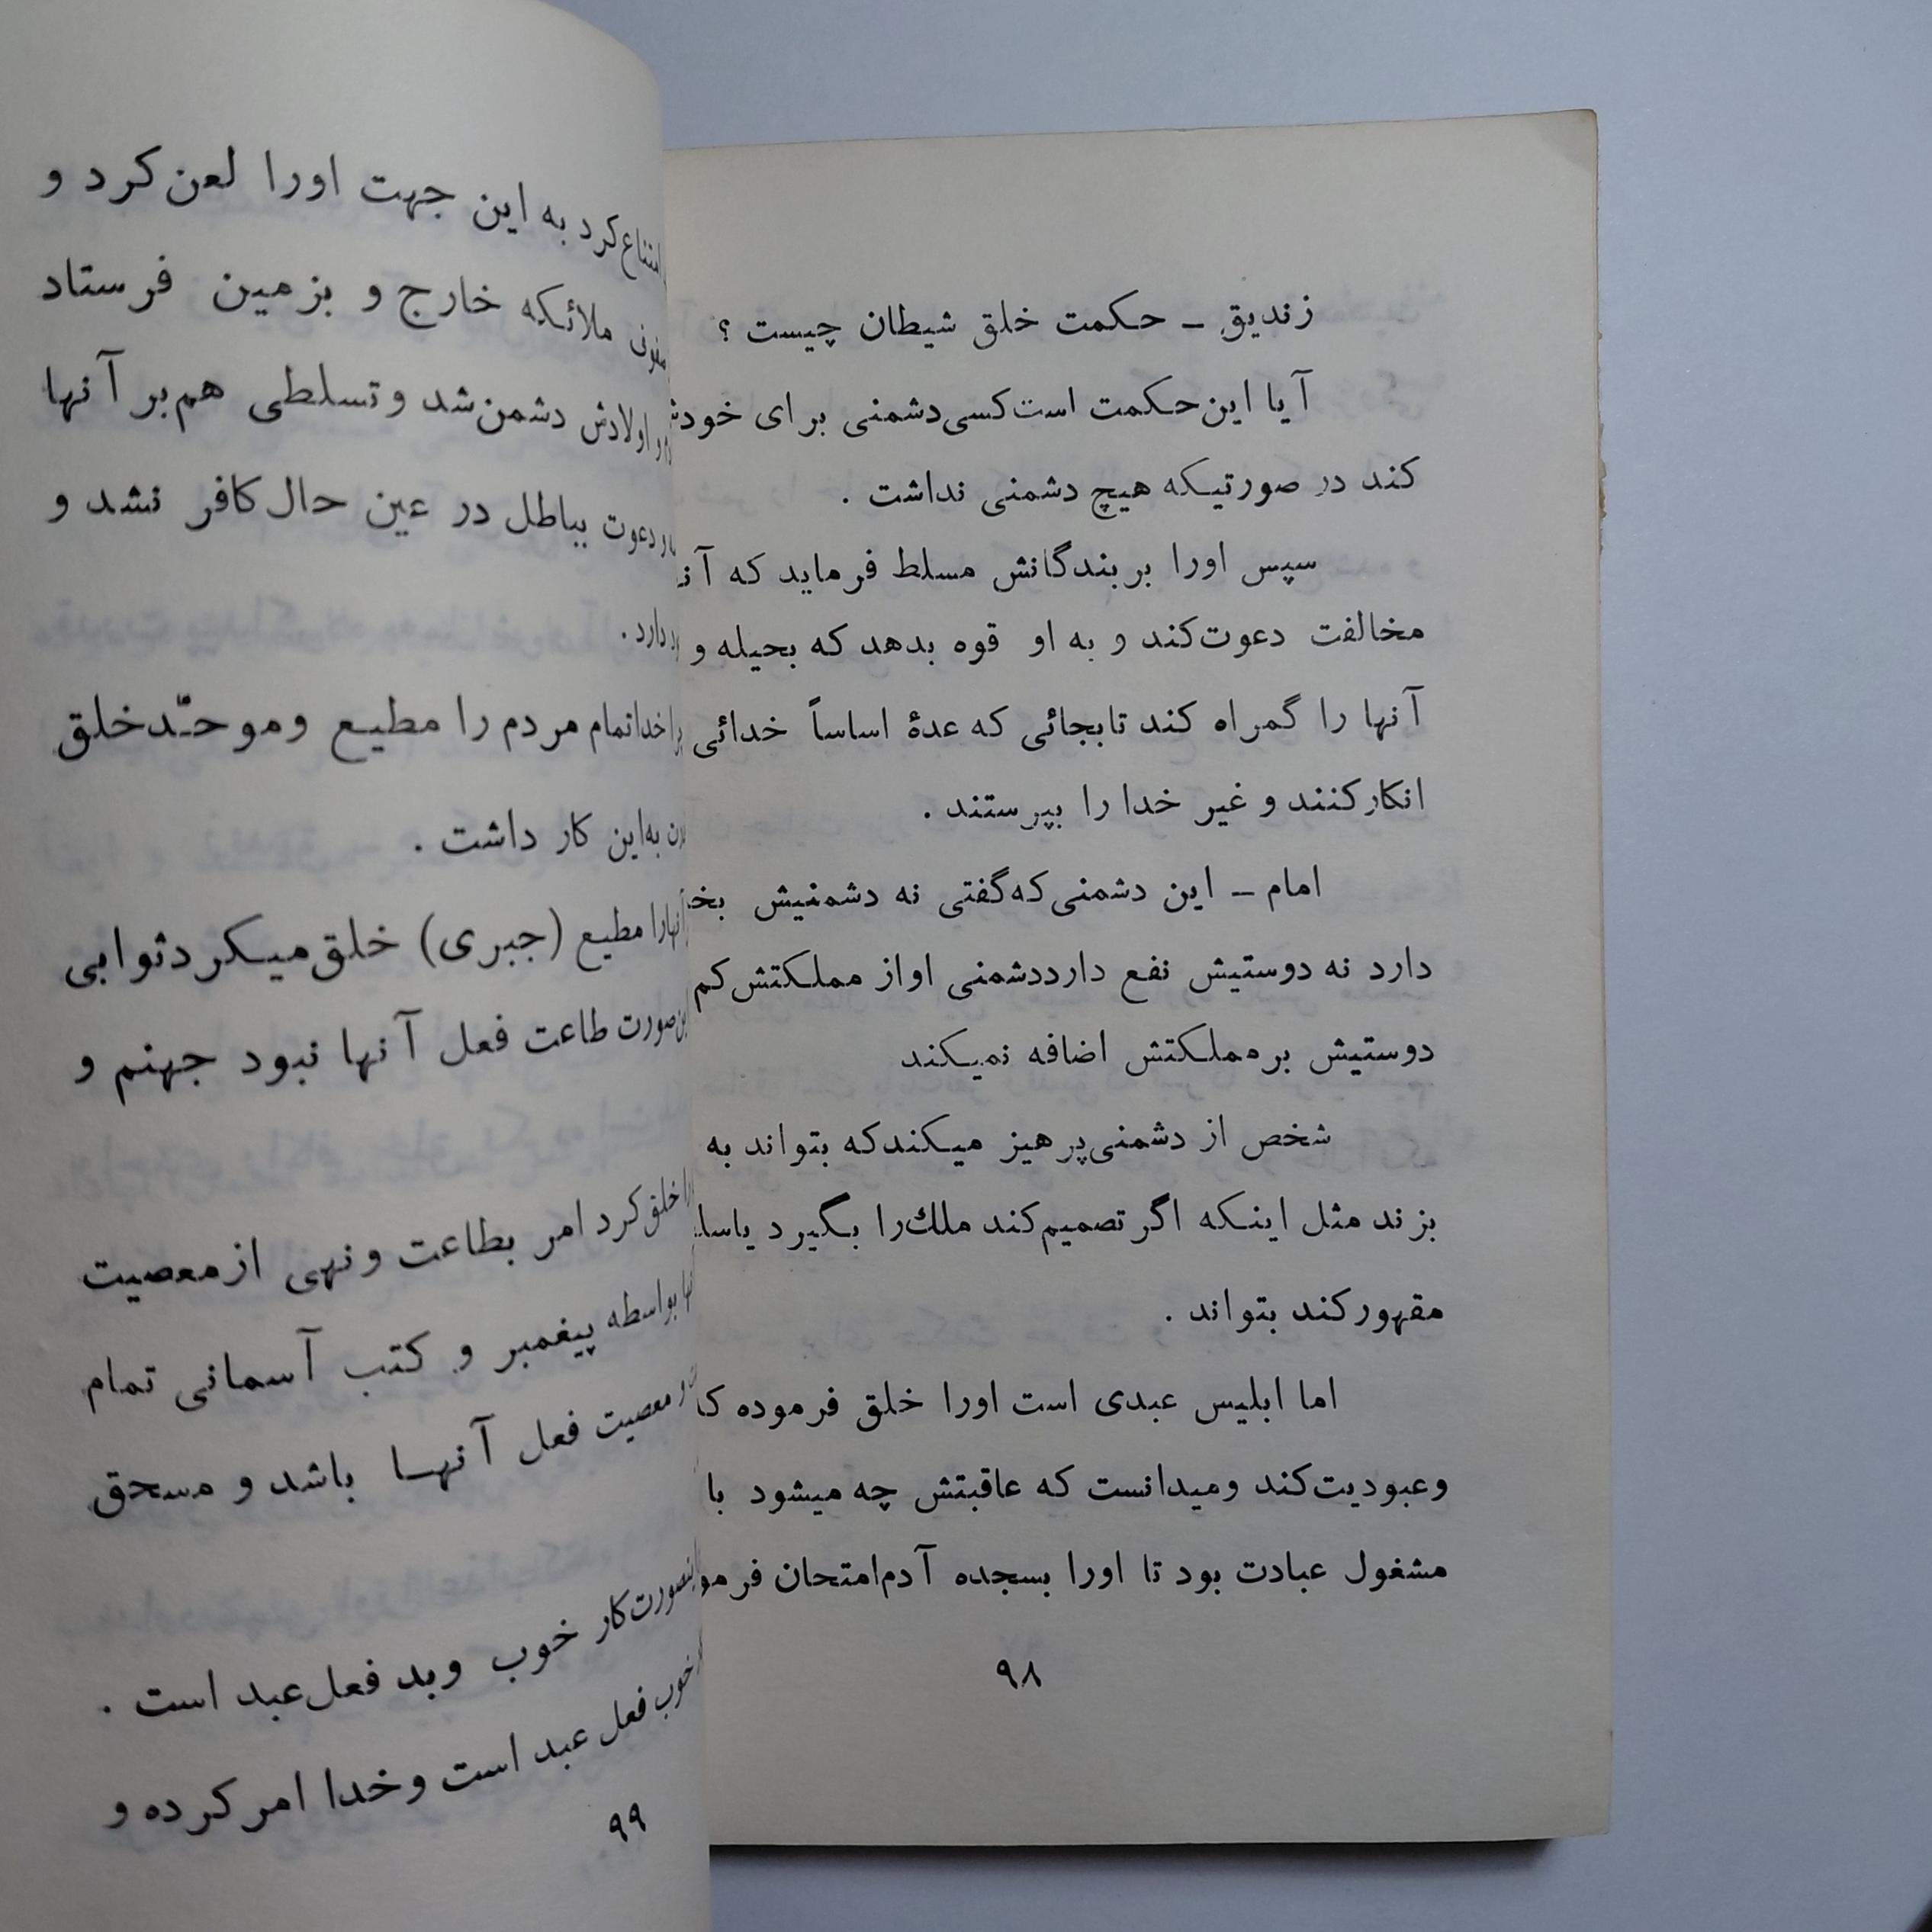 زندیق ـ حکمت خلق شیطان چیست ؟
آیا این حکمت است کسی دشمنی برای خودش
کند در صورتیکه هیچ دشمنی نداشت .
سپس اورا بر بندگانش مسلط فرماید که
مخالفت دعوت کند و به او قوه بدهد که بحیله و
آنها را گمراه کند تابجائی که عدهٔ اساساً خدائی
انکار کنند و غیر خدا را بپرستند .
امام ـ این دشمنی که گفتی نه دشمنیش
دارد نه دوستیش نفع دارددشمنی اواز مملکتش کم
دوستیش بر مملکتش اضافه نمیکند
شخص از دشمنی پرهیز میکند که بتواند به
بزند مثل اینکه اگر تصمیم کند ملك را بگیرد
مقهور کند بتواند .
اما ابلیس عبدی است اورا خلق فرموده
وعبودیت کند ومیدانست که عاقبتش چه میشود با
مشغول عبادت بود تا اورا بسجده آدم امتحان
۹۸
امتناع کرد به این جهت اورا لعن کرد و
ملائکه خارج و بزمین فرستاد
و اولادش دشمن شد و تسلطی هم بر آنها
دعوت بباطل در عین حال کافر نشد و
دارد .
خدا تمام مردم را مطیع و موحّد خلق
به این کار داشت .
آنهارا مطیع (جبری) خلق میکرد ثوابی
صورت طاعت فعل آنها نبود جهنم و
خلق کرد امر بطاعت و نهی از معصیت
بواسطه پیغمبر و کتب آسمانی تمام
و معصیت فعل آنها باشد و مسحق
کار خوب وبد فعل عبد است .
خوب فعل عبد است و خدا امر کرده و
۹۹